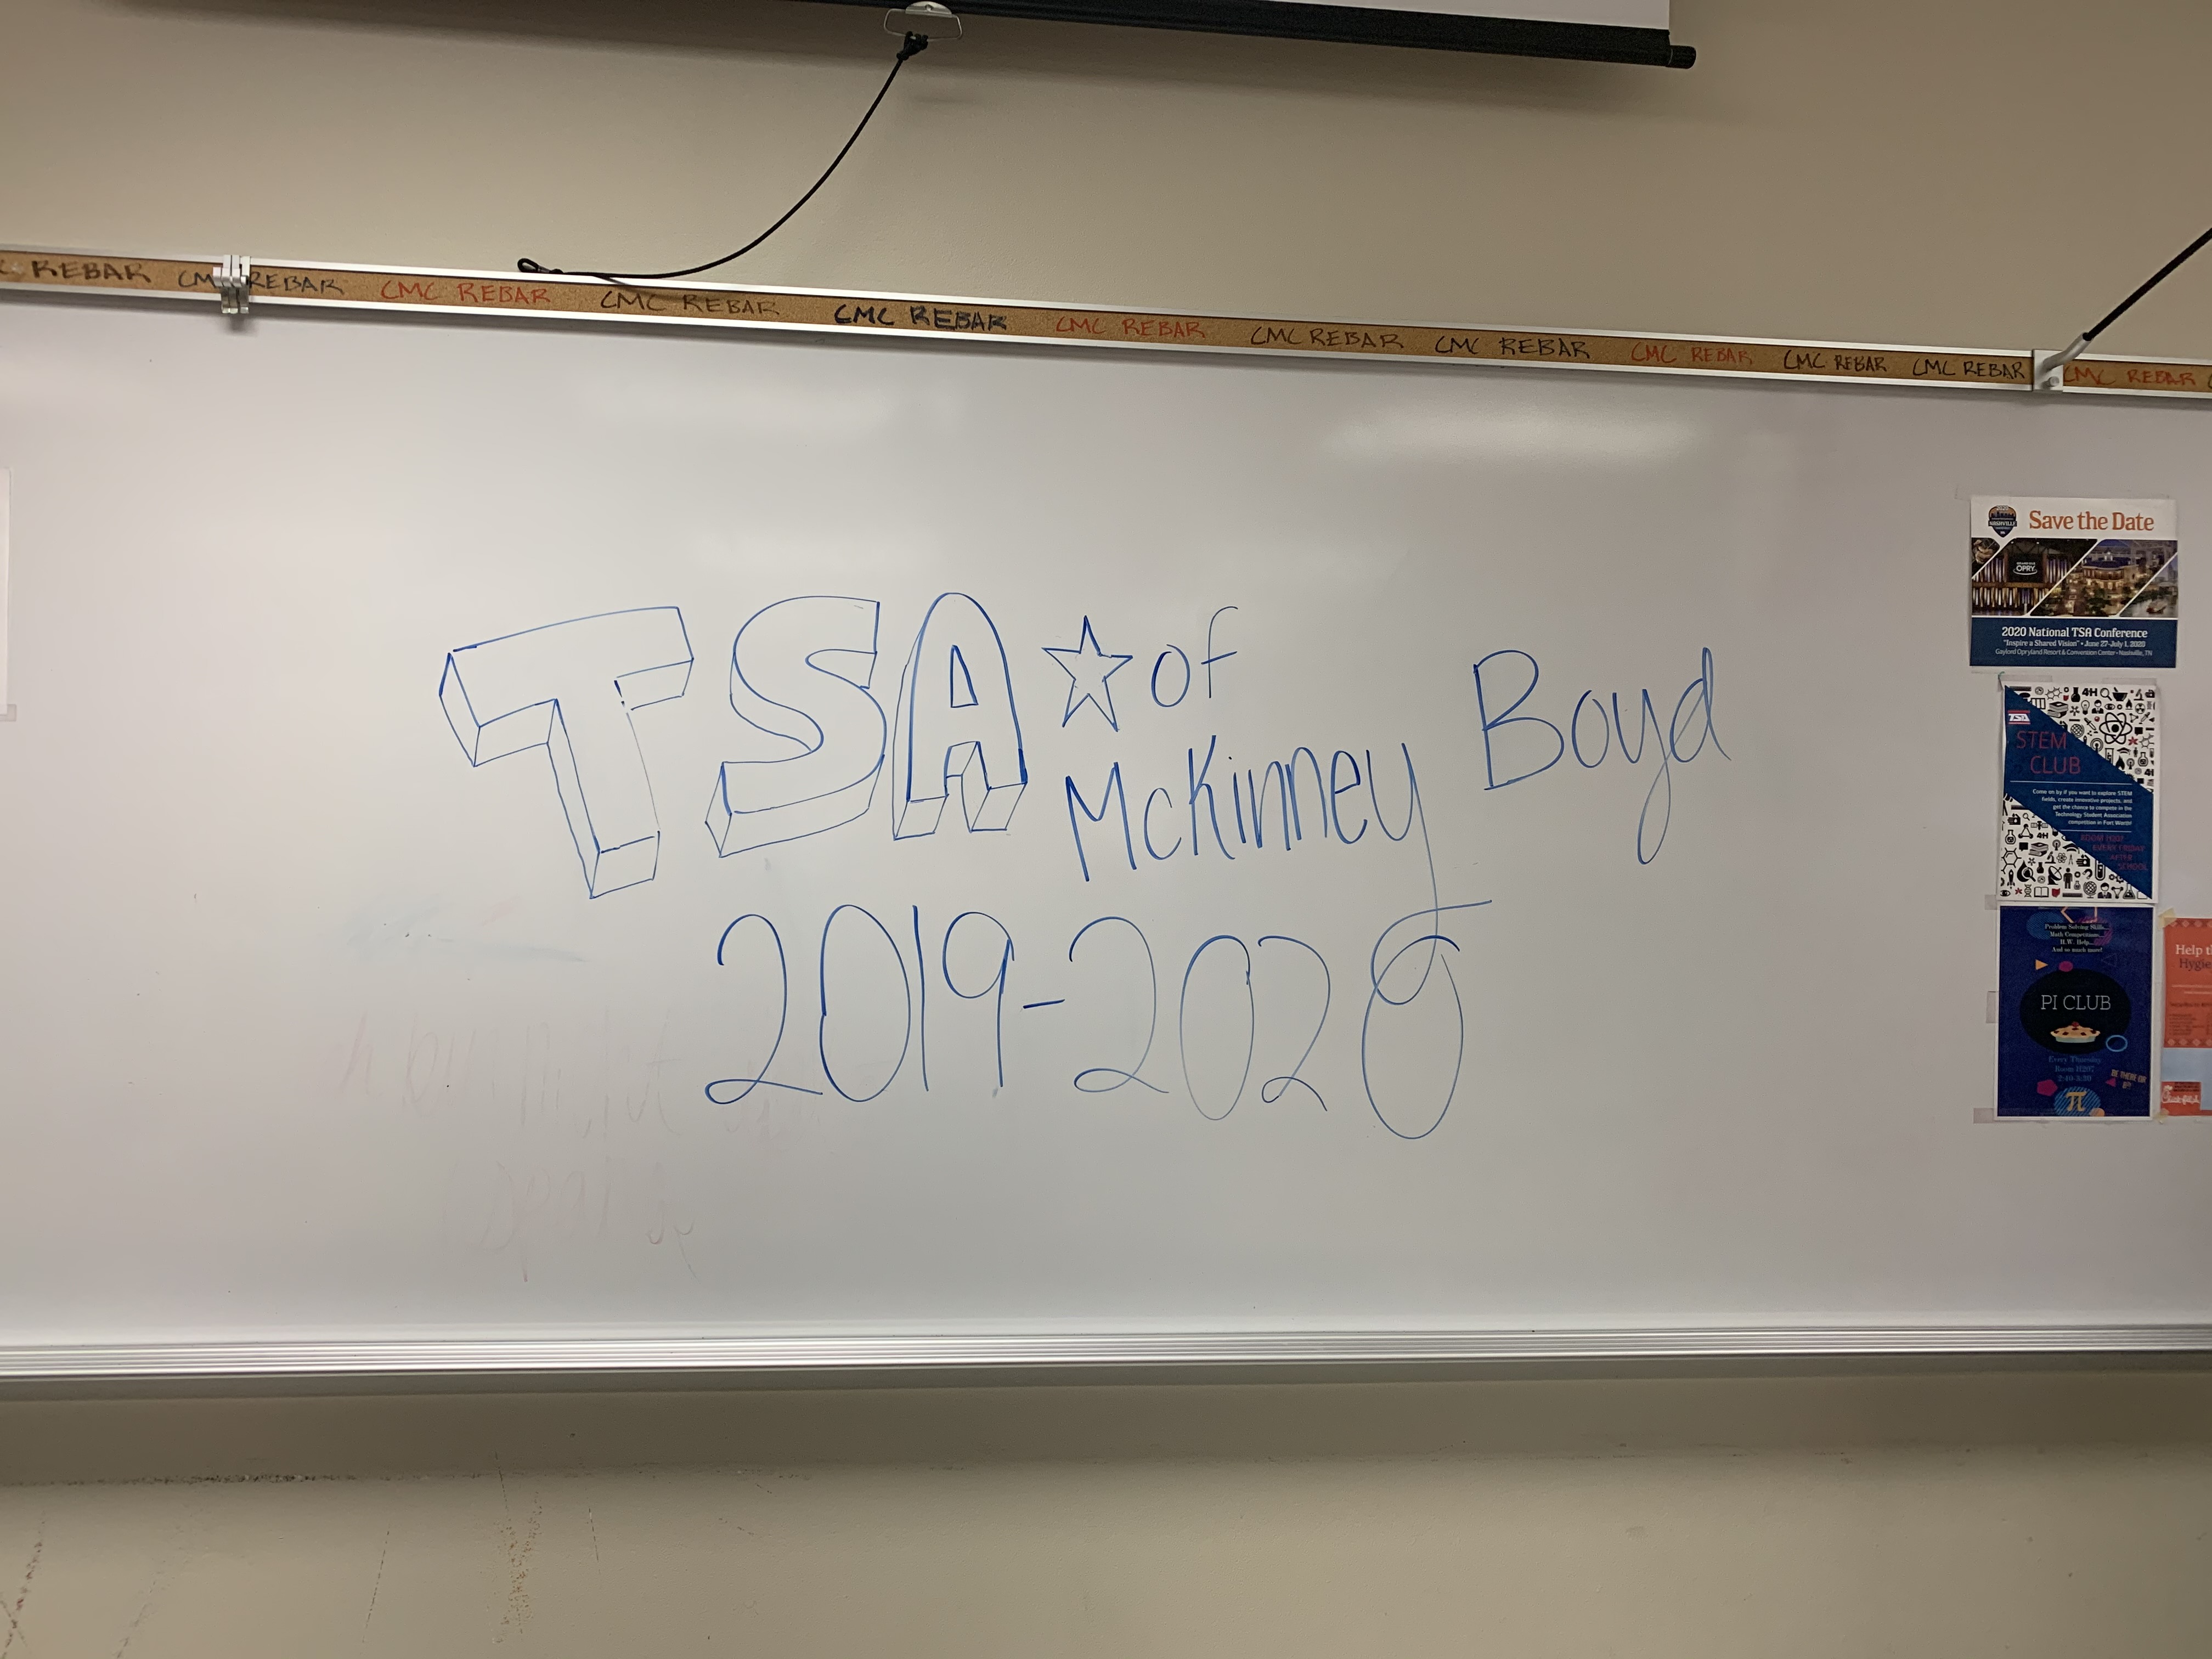 REBAR CMC REBAR CMC REBAR CMC REBAR CMC REBAR CMC REBAR CMC REBAR CMC REBAR CMC REBAR CMC REBAR CMC REBAR CMC REBAR
TSA of
McKinney Boyd
2019-2020
NASHVILLE
Save the Date
OPRY
2020 National TSA Conference
"Inspire a Shared Vision" • June 27-July 1, 2020
Gaylord Opryland Resort & Convention Center • Nashville, TN
4H
TSA
STEM
CLUB
Come on by if you want to explore STEM
fields, create innovative projects, and
get the chance to compete in the
Technology Student Association
competition in Fort Worth!
EVERY FRIDAY
AFTER
SCHOOL
4H
Problem Solving Skills...
Math Competitions...
H.W. Help...
And so much more!
PI CLUB
Every Thursday
Room H207
2:40-3:20
BE THERE OR
π
Help
Chick-fil-A